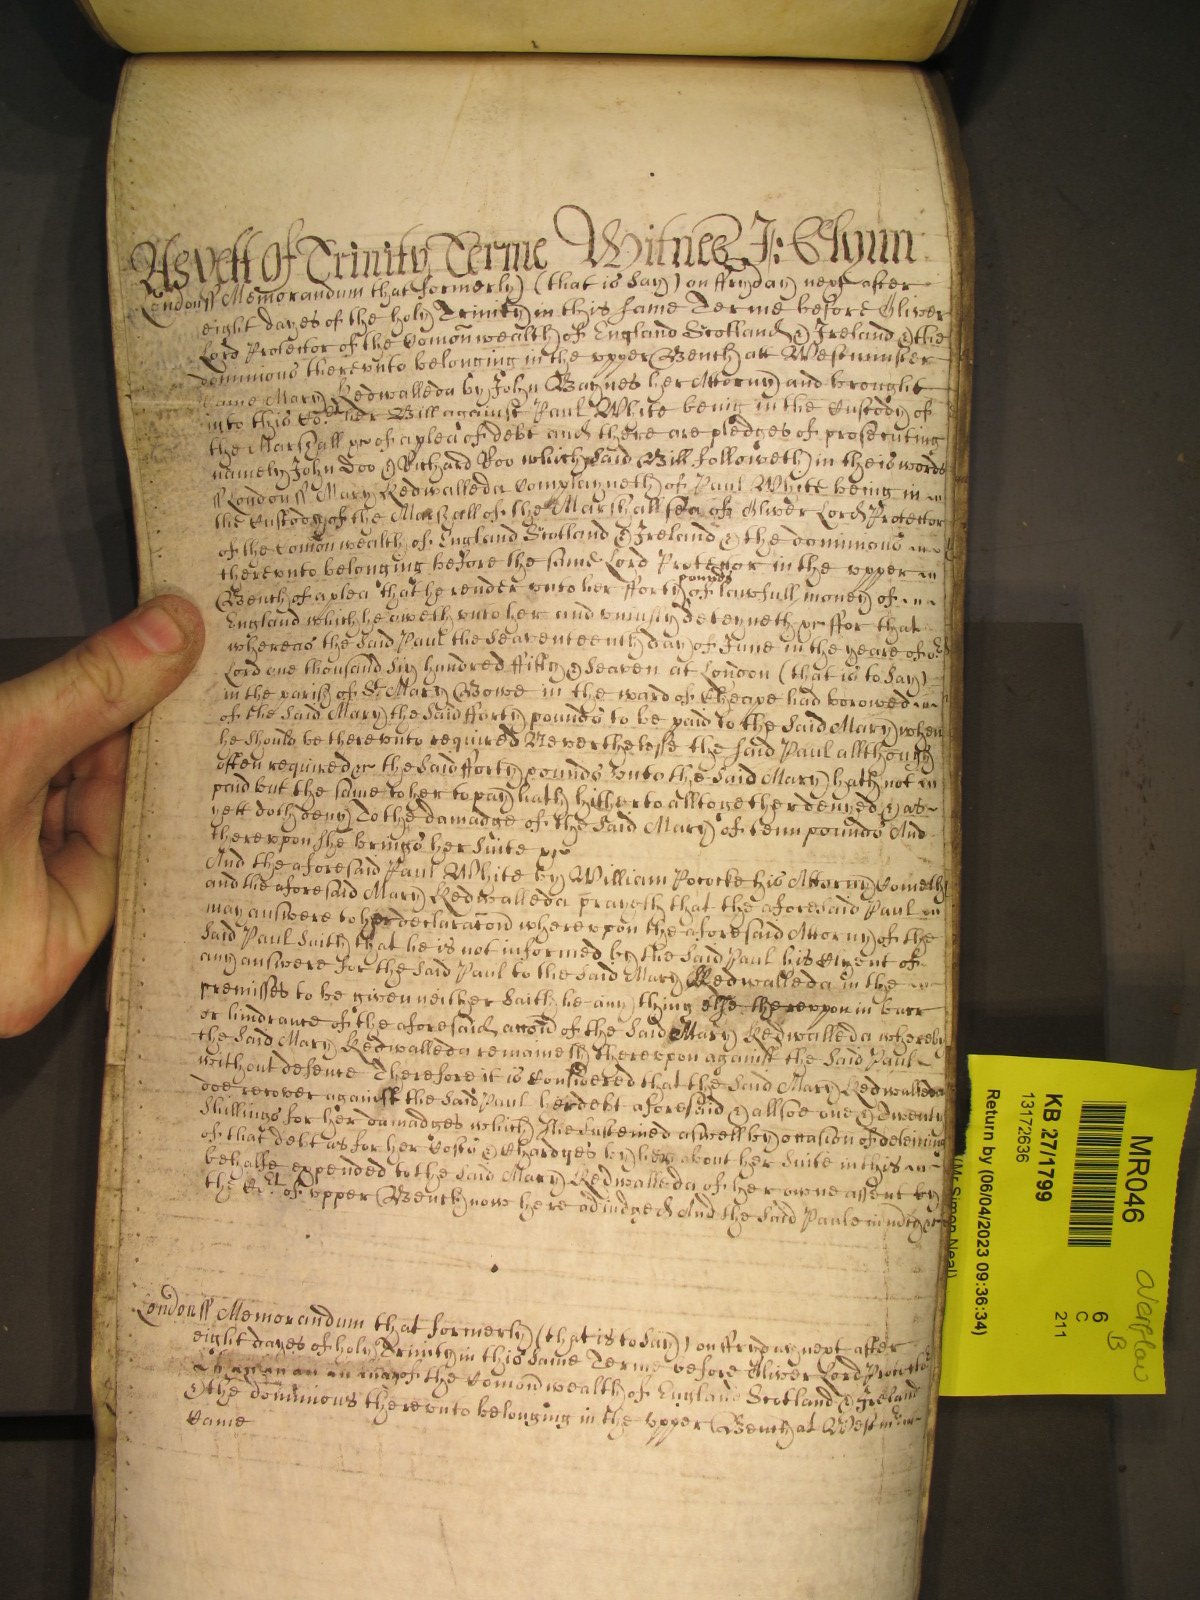 As yett Of Trinity Terme Witnes J: Glynn
London ss Memorandum that formerly (that is to say) on ffryday next after
eight dayes of the holy Trinity in this same Terme before Oliver
Lord Protector of the Comonwealth of England Scotland & Ireland & the
dominions therevnto belonging in the vpper Bench att Westminster
Came Mary Redwalleda by John Baynes her Attorny and brought
into this Cort her Bill against Paul White being in the Custody of
the Marshall &c of a plea of debt and there are pledges of prosecuting
namely John Doo & Richard Roo which said Bill followeth in theis words
ss London ss Mary Redwalleda Complayneth of Paul White being in
the Custody of the Marshall of the Marshallsea of Oliver Lord Protector
of the Comonwealth of England Scotland & Ireland & the dominions
therevnto belonging before the same Lord Protector in the vpper
Bench of a plea that he render vnto her fforty pounds of lawfull money of
England which he oweth vnto her and vniustly deteyneth &c ffor that
whereas the said Paul the seaventeenth day of June in the yeare of our
Lord one thousand six hundred ffifty & seaven at London (that is to say)
in the parish of St Mary Bowe in the ward of Cheape had borowed
of the said Mary the said fforty pounds to be paid to the said Mary when
he should be therevnto required Neverthelesse the said Paul allthough
often required &c the said fforty pounds vnto the said Mary hath not
paid but the same to her to pay hath hitherto alltogether denyed & as
yett doth deny To the damadge of the said Mary of tenn pounds And
therevpon she brings her suite &c
And the aforesaid Paul White by William Pococke his Attorny Cometh
and the aforesaid Mary Redwalleda prayeth that the aforesaid Paul
may answere to her declaracon wherevpon the aforesaid Attorny of the
said Paul saith that he is not informed by the said Paul his Clyent of
any answere for the said Paul to the said Mary Redwalleda in the
premisses to be given neither saith he any thing else therevpon in barr
or hindrance of the aforesaid accon of the said Mary Redwalleda whereby
the said Mary Redwalleda remaineth therevpon against the said Paul
without defence Therefore it is Considered that the said Mary Redwalleda
doe recover against the said Paul her debt aforesaid & allsoe one & Twenty
shillings for her damadges which she susteined aswell by occasion of deteining
of that debt as for her Costs & Chardges by her about her suite in this
behalfe expended to the said Mary Redwalleda of her owne assent by
the Cort of vpper Bench now here adiudged And the said Paule in mercy &c
London ss Memorandum that formerly (that is to say) on ffryday next after
eight dayes of holy Trinity in this same Terme before Oliver Lord Protector
of the Comonwealth of England Scotland & Ireland
& the dominions therevnto belonging in the vpper Bench at Westminster
Came
MR046
6
C
211
KB 27/1799
13172636
Return by (06/04/2023 09:36:34)
(Mr Simon Neal)
Overflow
B